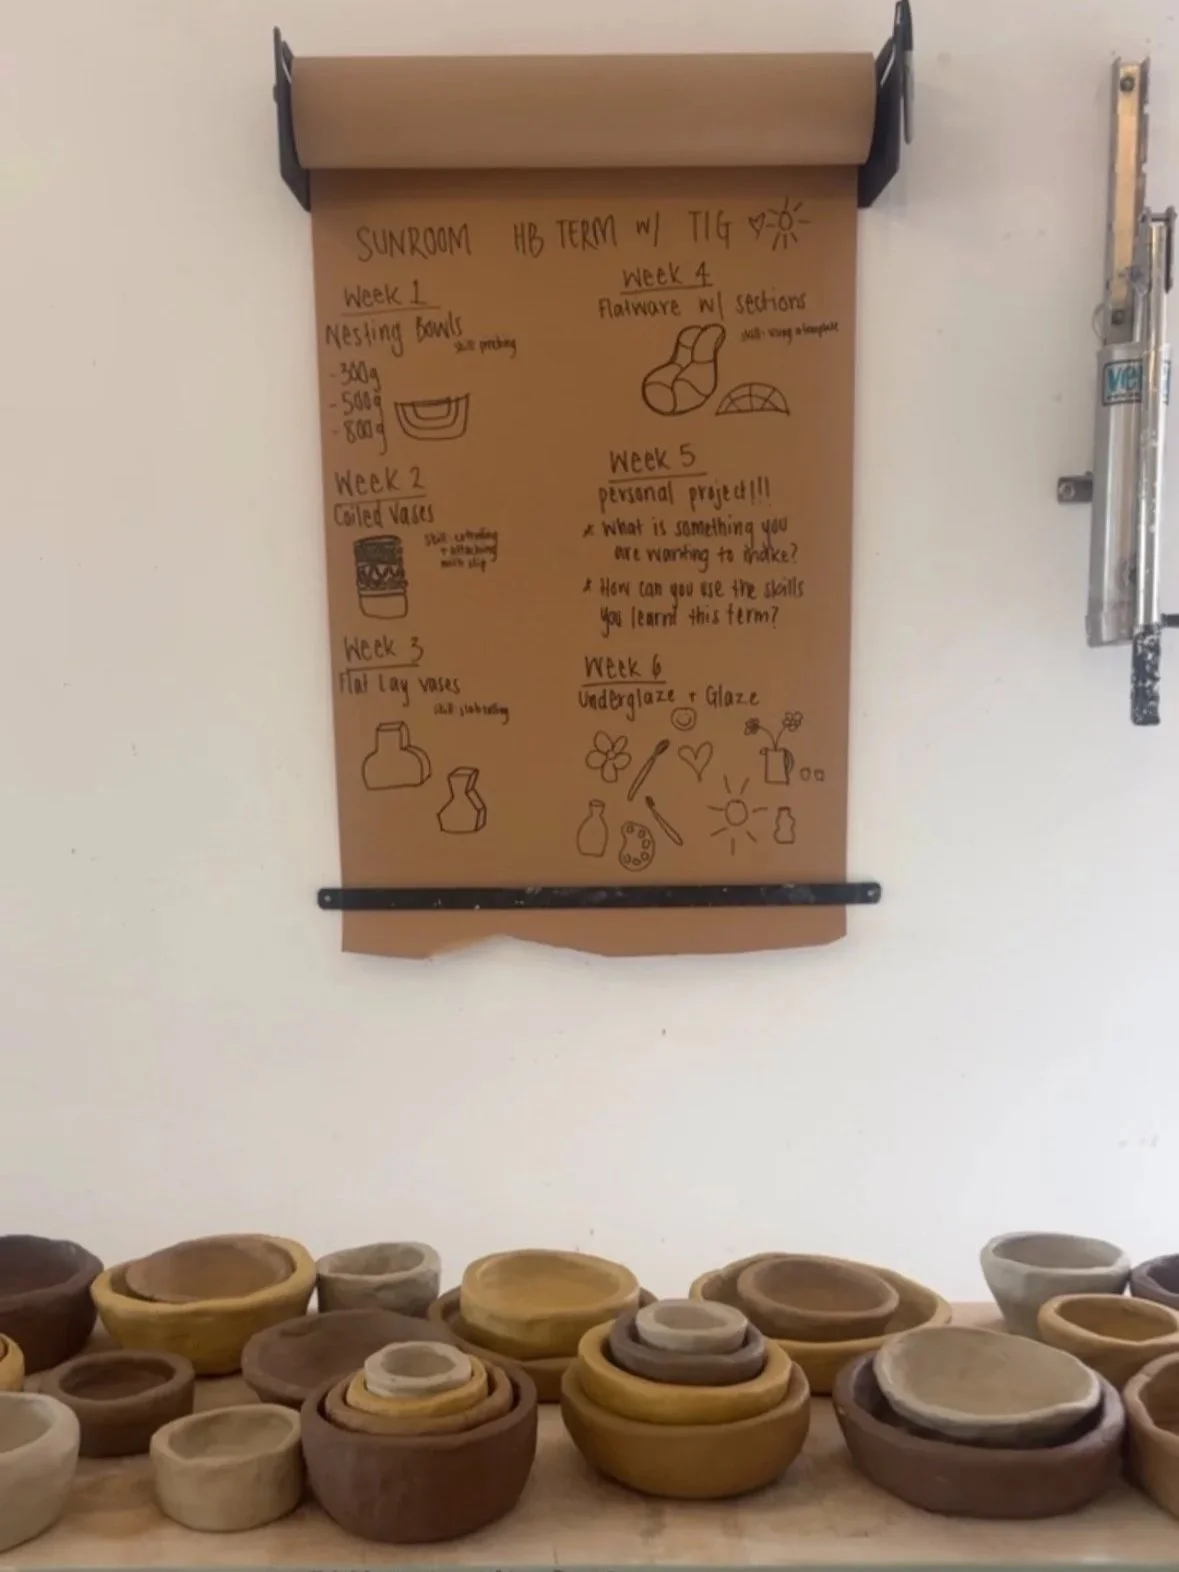 SUNROOM HB TERM W/ TIG
Week 1
Nesting Bowls
skill: pinching
- 300g
- 500g
- 800g
Week 2
Coiled Vases
skill: extruding
+ attaching
with slip
Week 3
Flat Lay vases
skill: slab rolling
Week 4
Flatware w/ sections
skill: using a template
Week 5
personal project!!!
* What is something you
are wanting to make?
* How can you use the skills
you learnt this term?
Week 6
Underglaze + Glaze